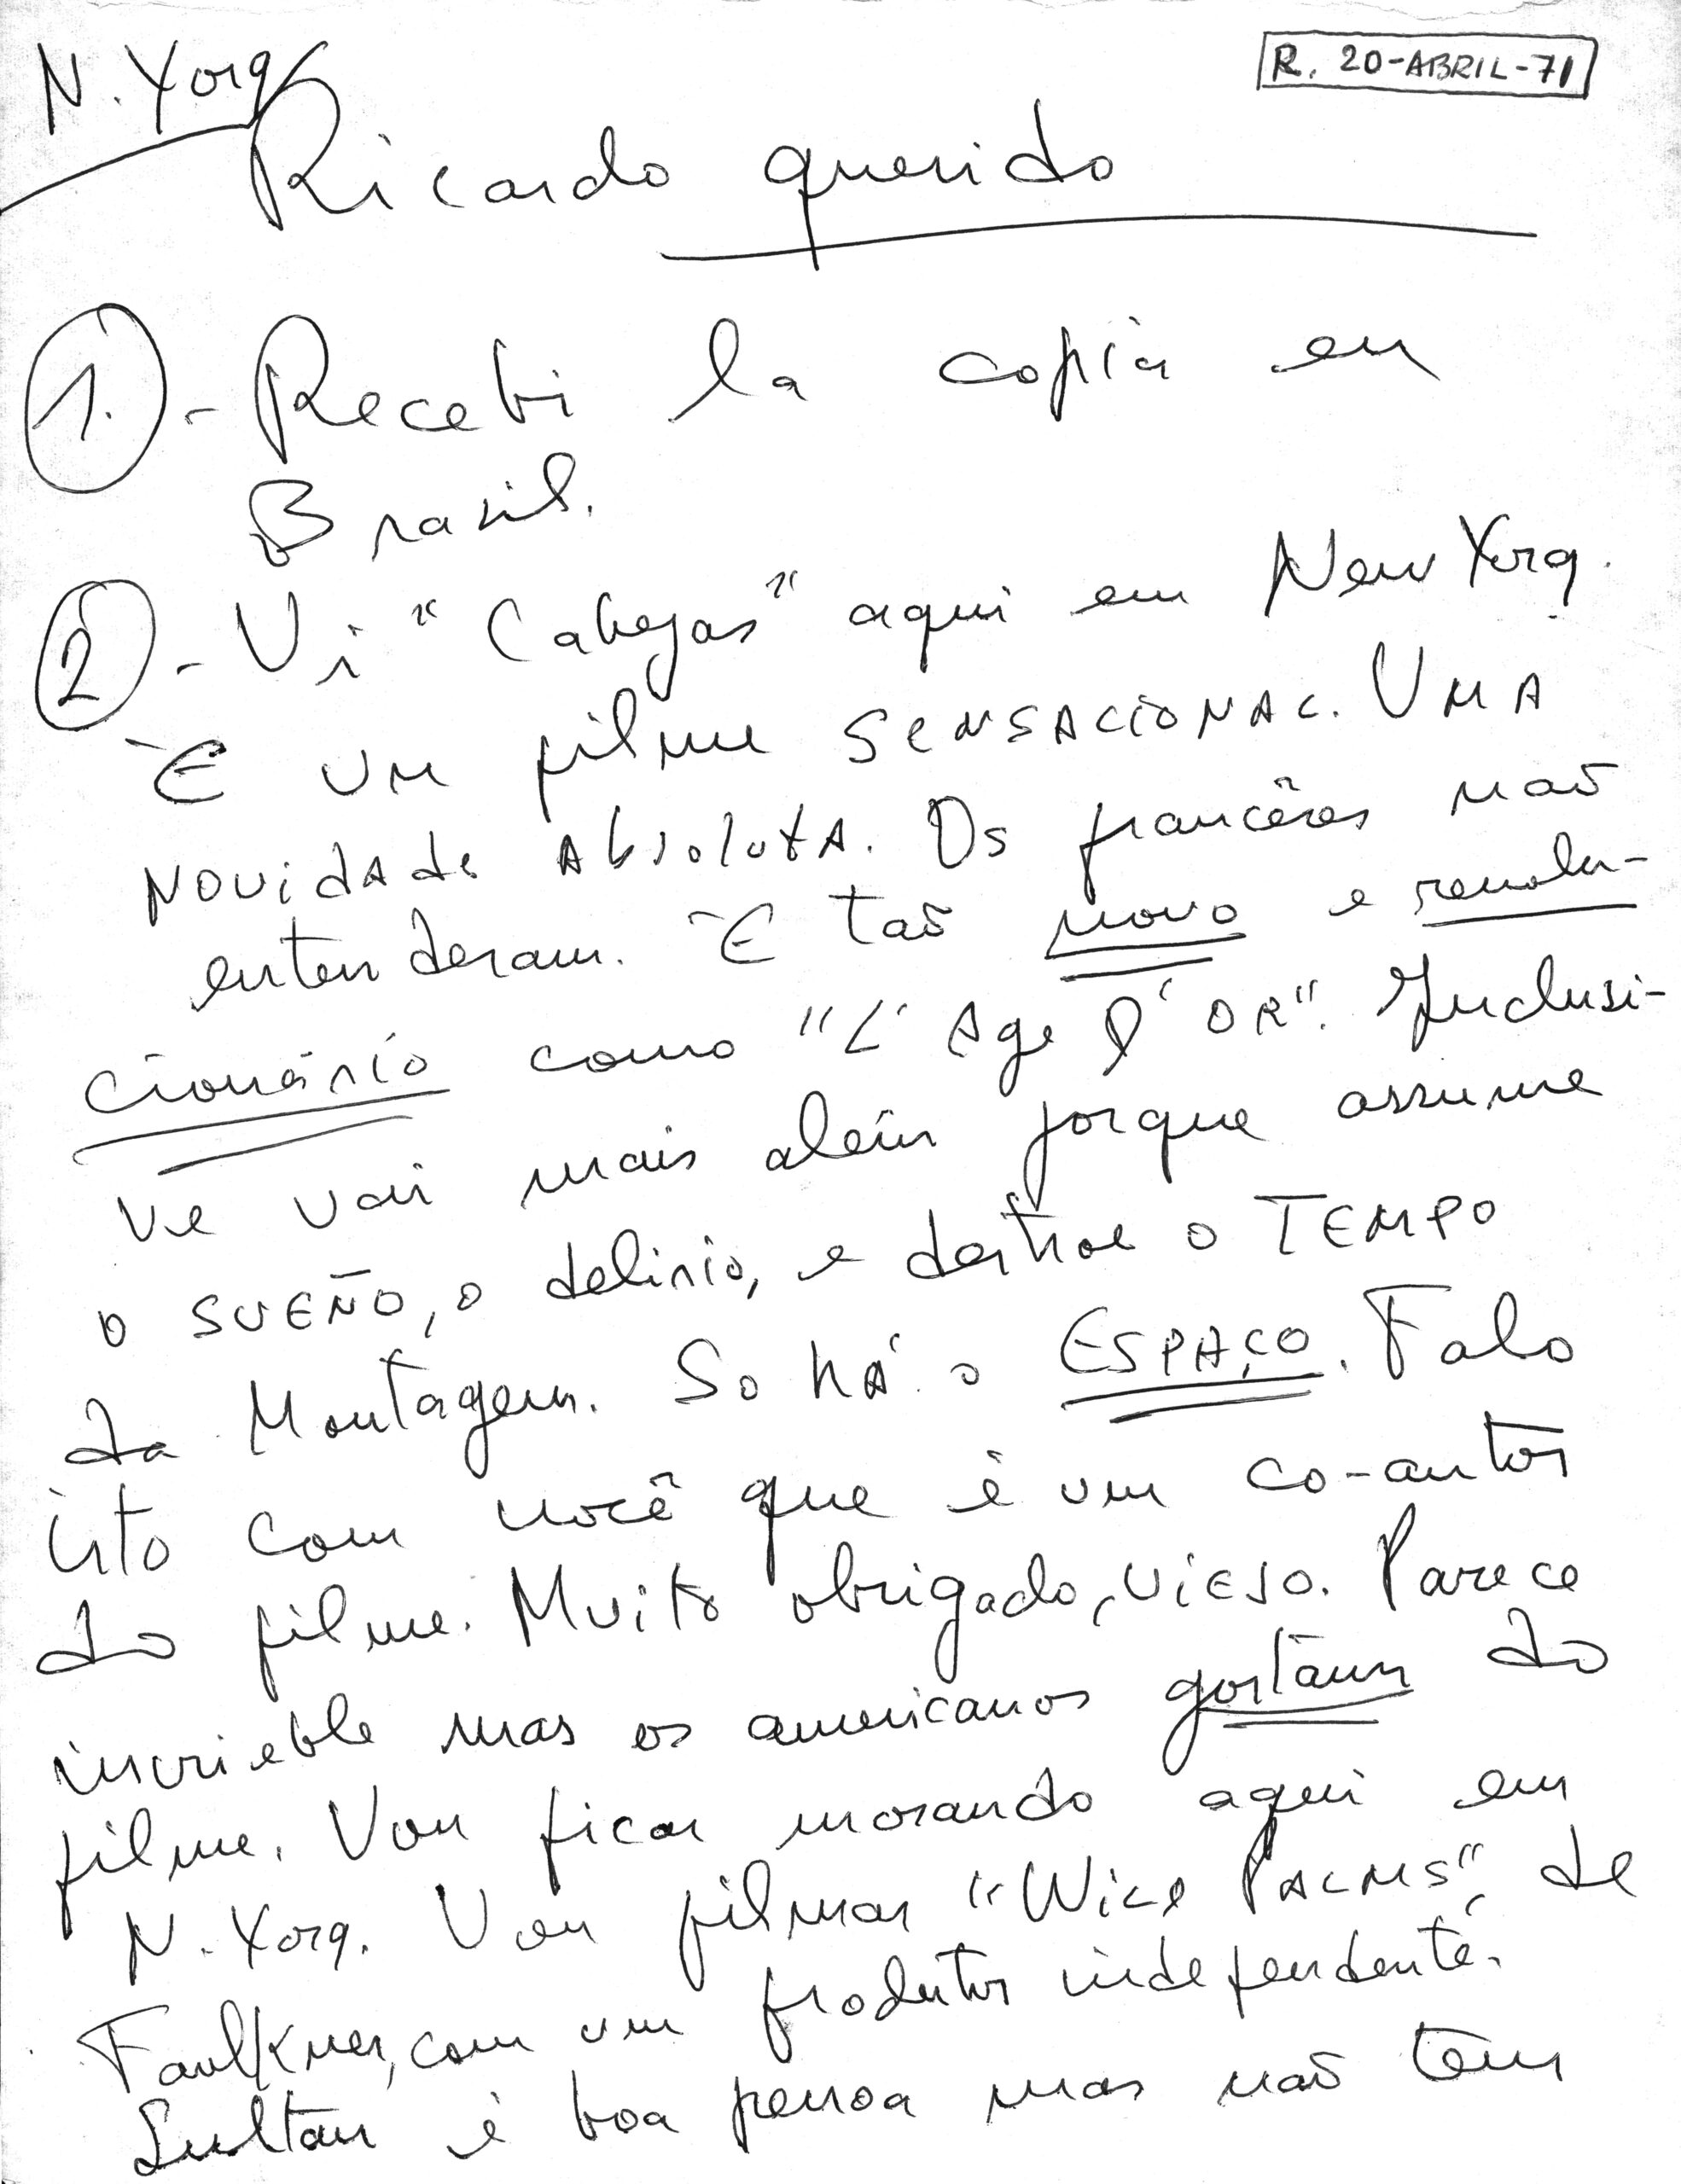 N. Yorq
R. 20-ABRIL-71
Ricardo querido
1. - Recebi la copia en
Brasil.
2 - Vi "Cabezas" aqui em New Yorq.
É um filme SENSACIONAL. UMA
NOVIDADE AbsolutA. Os francêses não
entenderam. É tão novo e revolu-
cionário como "L'Age d'OR". Inclusi-
ve vai mais além porque assume
o SUEÑO, o delirio, e destroe o TEMPO
da Montagem. So há o ESPAÇO. Falo
isto com você que é um co-autor
do filme. Muito obrigado, VIEJO. Parece
incrieble mas os americanos gostam do
filme. Vou ficar morando aqui em
N. Yorq. Vou filmar "Wild PALMS" de
Faulkner, com um produtor independente.
Sultan é boa pessoa mas não tem